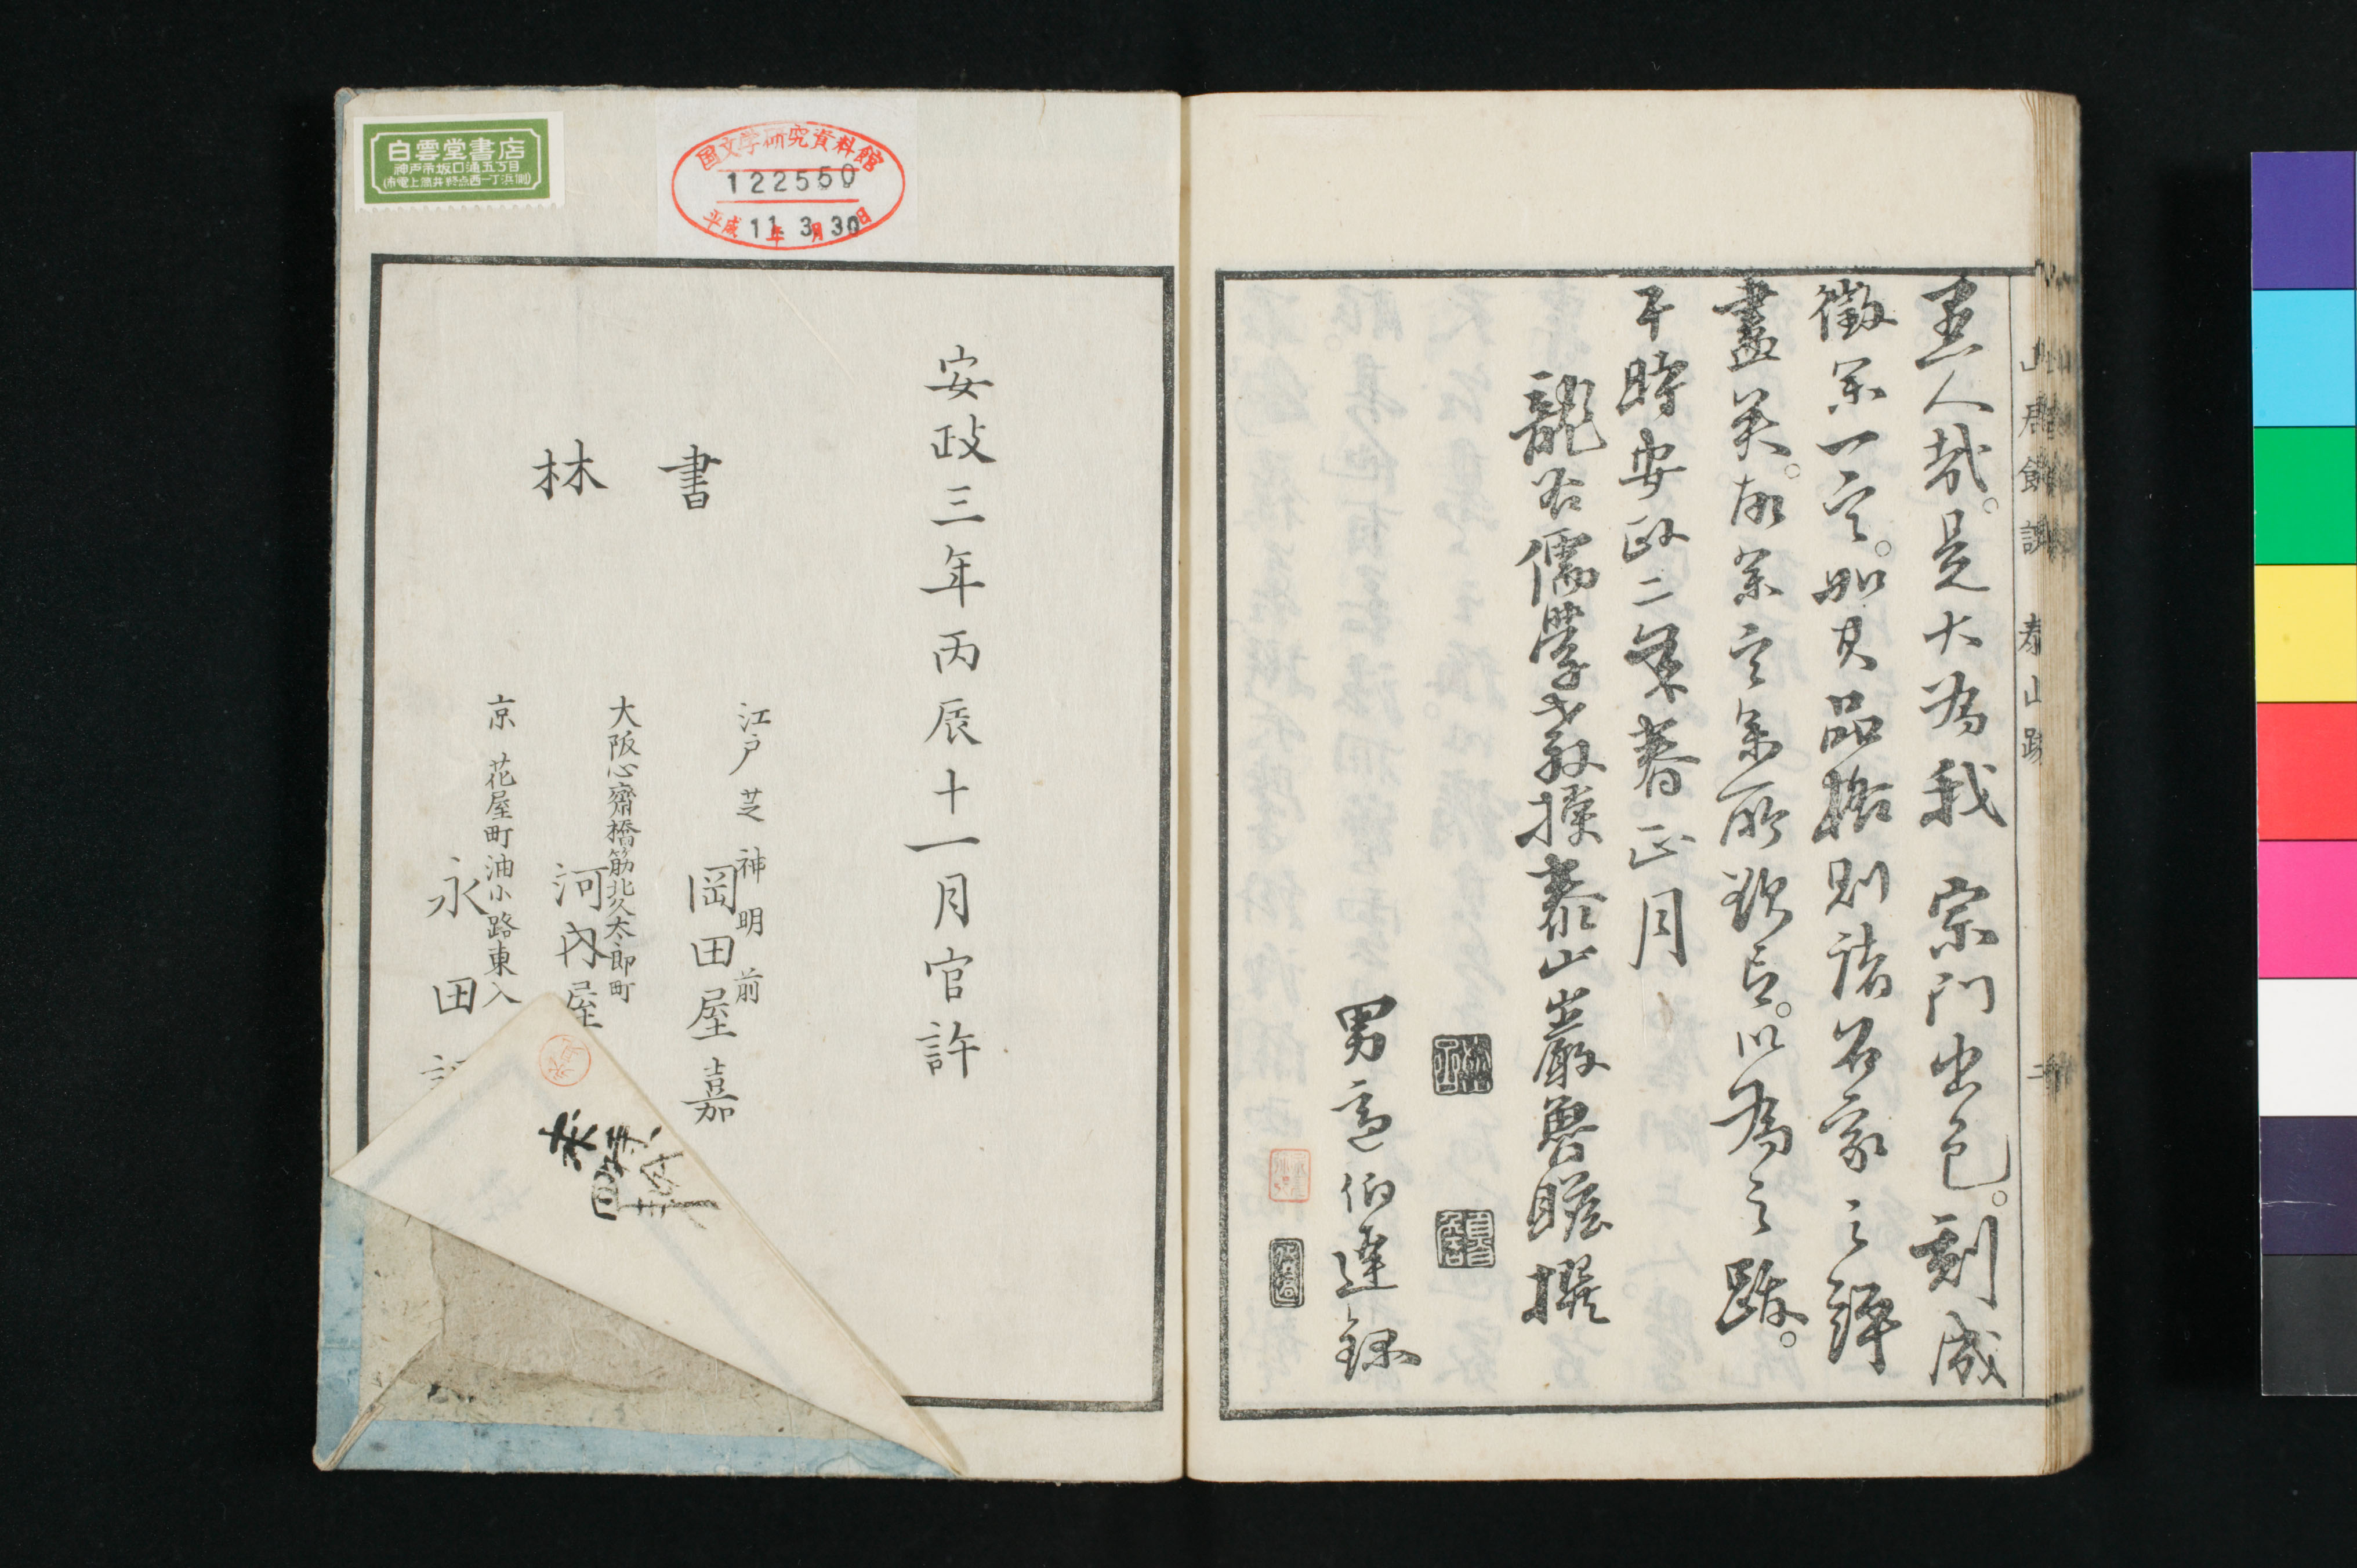 主人哉。是大為我宗門出色。刻成
徴余一言。如其品格則諸名家之評
盡矣。故余言余所欲言。以為之跋。
于時安政二年春正月
龍谷儒學教授泰山巌魯瞻撰
男亮伯達録
安政三年丙辰十一月官許
書
林
江戸芝神明前
岡田屋嘉
大阪心齋橋筋北久太郎町
河内屋
京 花屋町油小路東入
永田
白雲堂書店
神戸市坂口通五丁目
(市電上筒井終点西一丁浜側)
国文学研究資料館
122550
平成11年3月30日